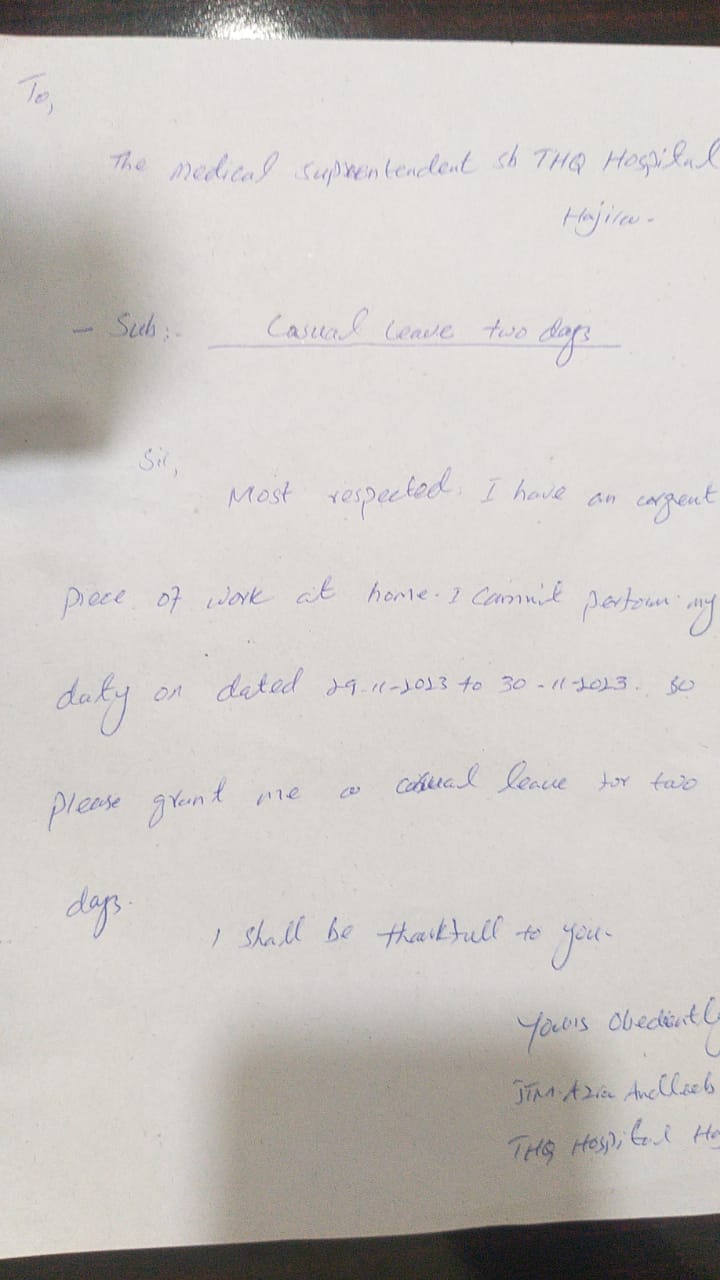 To,
The Medical Suprentendent sb THQ Hospital
Hajira.
- Sub:- Casual leave two days
Sir,
Most respected. I have an urgent
piece of work at home. I cannit perform my
duty on dated 29-11-2023 to 30-11-2023. so
please grant me a casual leave for two
days.
I shall be thankfull to you.
Yours Obediently
THQ Hospital